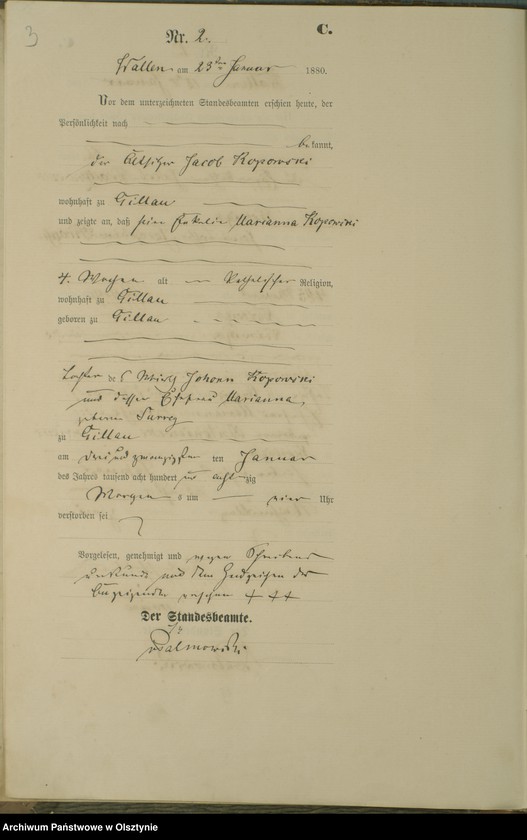 3
Nr. 2.
C.
Wallen am 23ten Januar 1880.
Vor dem unterzeichneten Standesbeamten erschien heute, der
Persönlichkeit nach
bekannt,
der Altsitzer Jacob Kopowski
wohnhaft zu Gillau
und zeigte an, daß seine Enkelin Marianna Kopowski
4 Wochen alt katholischer Religion,
wohnhaft zu Gillau
geboren zu Gillau
Tochter des Wirths Johann Kopowski
und dessen Ehefrau Marianna,
geborene
zu Gillau
am drei und zwanzigsten ten Januar
des Jahres tausend acht hundert und achtzig
Morgens um vier Uhr
verstorben sei
Vorgelesen, genehmigt und wegen Schreibens
Unkunde mit dem Handzeichen des
Anzeigenden versehen + + +
Der Standesbeamte.
Palmowski
Archiwum Państwowe w Olsztynie